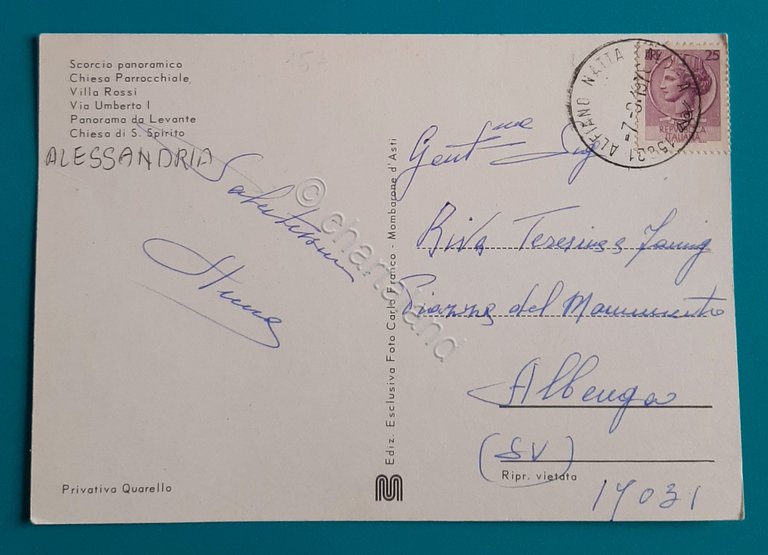 Scorcio panoramico
Chiesa Parrocchiale
Villa Rossi
Via Umberto I
Panorama da Levante
Chiesa di S. Spirito
ALESSANDRIA
Salutissimi
Privativa Quarello
Ediz. Esclusiva Foto Carlo Franco - Mombarone d'Asti
© ehansland
ALFIANO NATTA
15021
25
REPUBBLICA
ITALIANA
Gent.me Sig
Riva Teresina e Fanny
Piazza del Monumento
Albenga
(SV)
Ripr. vietata
17031